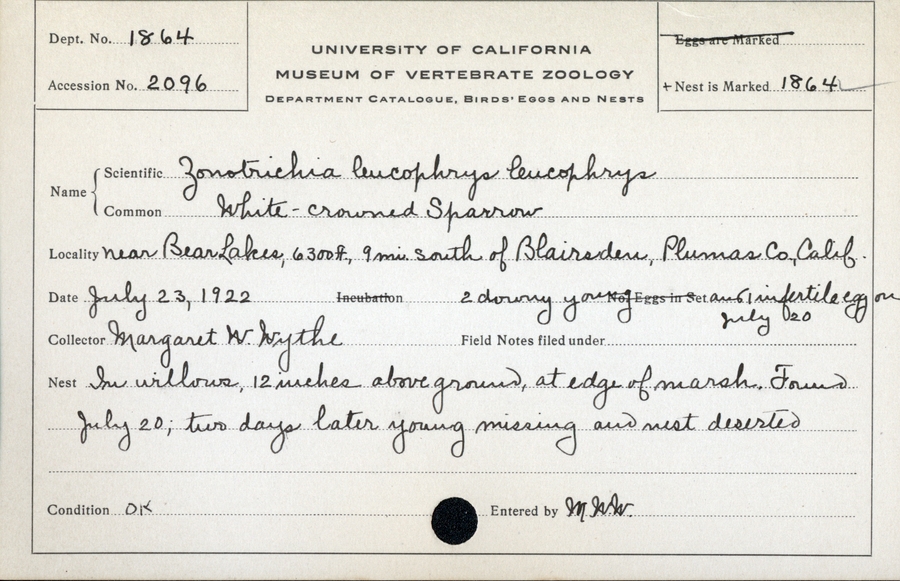 Dept. No. 1864
Accession No. 2096
UNIVERSITY OF CALIFORNIA
MUSEUM OF VERTEBRATE ZOOLOGY
DEPARTMENT CATALOGUE, BIRDS' EGGS AND NESTS
Eggs are Marked
+ Nest is Marked 1864
Name
Scientific Zonotrichia leucophrys leucophrys
Common White-crowned Sparrow
Locality near Bear Lakes, 6300 ft, 9 mi. south of Blairsden, Plumas Co., Calif.
Date July 23, 1922 Incubation 2 downy young No. Eggs in Set and 1 infertile egg on
July 20
Collector Margaret W. Wythe Field Notes filed under
Nest In willows, 12 inches above ground, at edge of marsh. Found
July 20; two days later young missing and nest deserted
Condition OK Entered by M.W.W.